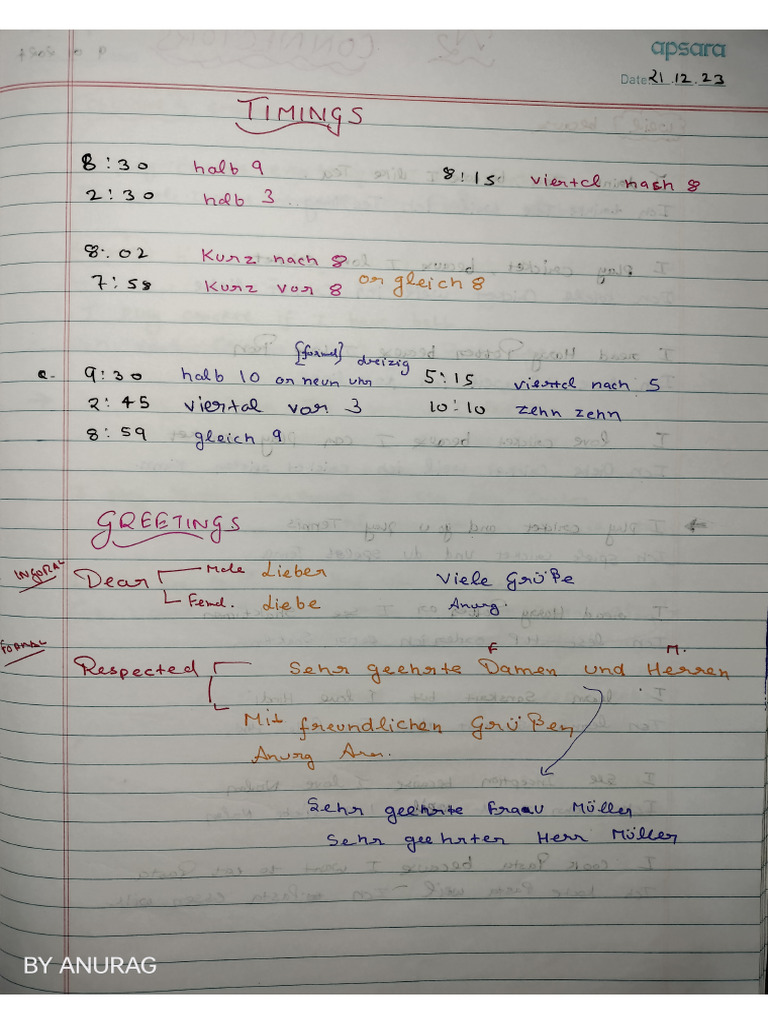 apsara
Date 21.12.23
TIMINGS
8:30 halb 9 8:15 viertel nach 8
2:30 halb 3
8:02 Kurz nach 8
7:58 Kurz vor 8 or gleich 8
{formal} dreizig
Q. 9:30 halb 10 or neun uhr 5:15 viertel nach 5
2:45 viertal vor 3 10:10 zehn zehn
8:59 gleich 9
GREETINGS
Dear Male Lieber Viele Grüße
Femal. Liebe Anurg.
FORMAL F M.
Respected Sehr geehrte Damen und Herren
Mit freundlichen Grüßen
Anurg
Sehr geehrte Fraau Müller
Sehr geehrter Herr Müller
BY ANURAG